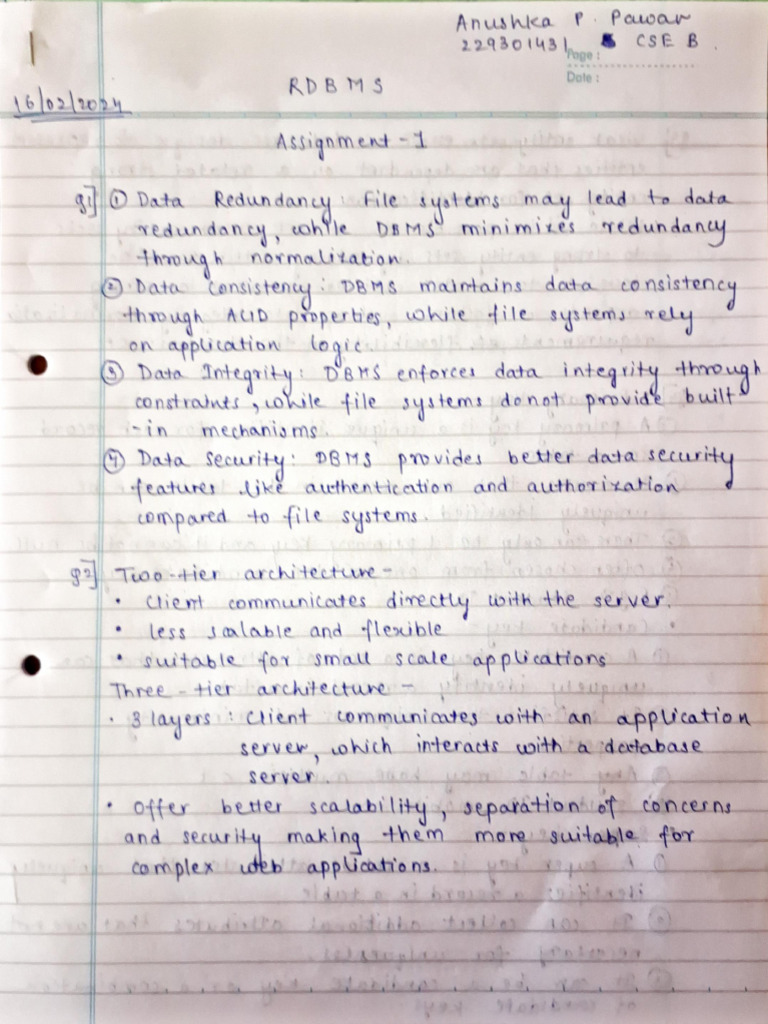 Anushka P. Pawar
229301431 CSE B.
Page :
Date :
RDBMS
16/02/2024
Assignment - 1
Q1] ① Data Redundancy: File systems may lead to data
redundancy, while DBMS minimizes redundancy
through normalization.
② Data Consistency: DBMS maintains data consistency
through ACID properties, while file systems rely
on application logic.
③ Data Integrity: DBMS enforces data integrity through
constraints, while file systems donot provide built
-in mechanisms.
④ Data Security: DBMS provides better data security
features like authentication and authorization
compared to file systems.
Q2] Two-tier architecture -
• Client communicates directly with the server.
• less scalable and flexible
• suitable for small scale applications
Three-tier architecture -
• 3 layers : Client communicates with an application
server, which interacts with a database
server.
• Offer better scalability, separation of concerns
and security making them more suitable for
complex web applications.